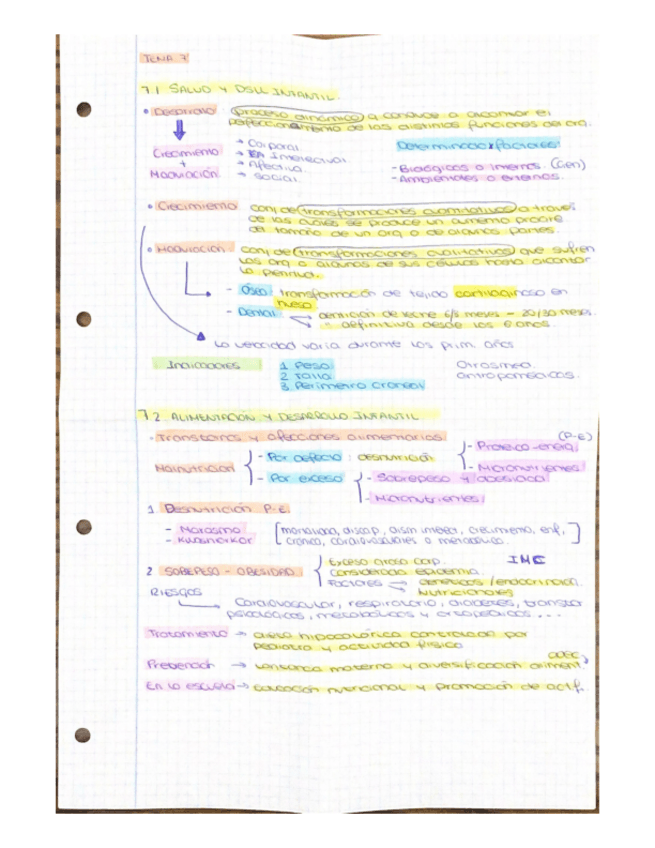 TEMA 7
7.1 SALUD Y DSLL INFANTIL.
• Desarrollo: proceso dinámico q conduce a alcanzar el
perfeccionamiento de las distintas funciones del org.
Crecimiento + Maduración
→ Corporal
→ Intelectual
→ Afectiva
→ Social
Determinado x factores:
- Biológicos o internos. (Gen)
- Ambientales o externos.
• Crecimiento conj de transformaciones cuantitativas a través
de las cuales se produce un aumento progre
de tamaño de un org o de algunas partes.
• Maduración: conj. de transformaciones cualitativas que sufren
los org o algunas de sus células hasta alcanzar
la plenitud.
- Ósea: transformación de tejido cartilaginoso en
hueso
- Dental: → dentición de leche 6/8 meses - 20/30 meses.
→ " definitiva desde los 6 años.
La velocidad varía durante los prim. años
Indicadores
1 Peso
2 Talla
3 Perímetro craneal
Otros med.
antropométricas.
7.2 ALIMENTACIÓN Y DESARROLLO INFANTIL
- Transtornos y afecciones alimentarias.
Malnutrición
- Por defecto: desnutrición
- Proteico-energ. (P-E)
- Micronutrientes
- Por exceso
- Sobrepeso y obesidad
- Micronutrientes
1 Desnutrición P-E
- Marasmo
- Kwashiorkor
[ discap, crecimiento, enf.
cronica, cardiovasculares o metabólica. ]
2 SOBREPESO - OBESIDAD.
Exceso graso corp. IMC
Considerada epidemia.
Factores → Genéticos / endocrinos.
→ Nutricionales
RIESGOS
→ Cardiovascular, respiratorio, diabetes, transtor
psicológicos, metabólicos y ortopédicos...
Tratamiento → dieta hipocalórica controlada por
pediatra y actividad física
Prevención → Lactancia materna y diversificación aliment. adec.
En la escuela → educación nutricional y promoción de act f.